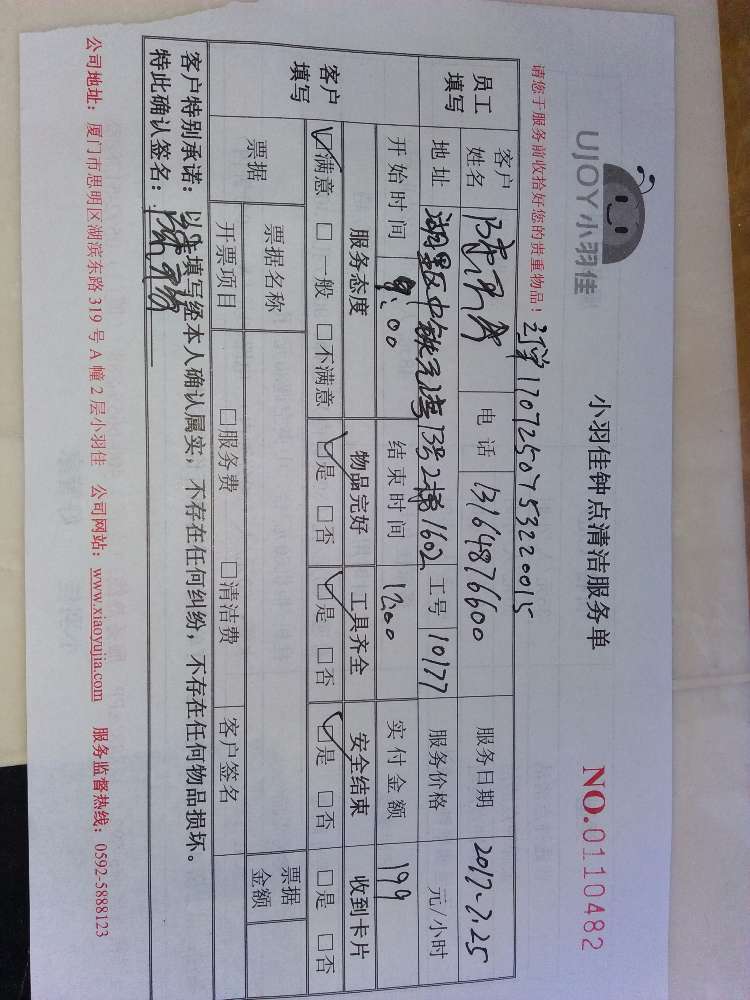 UJOY小羽佳
小羽佳钟点清洁服务单
NO.0110482
请您于服务前收拾好您的贵重物品！
订单1707250753220015
员工填写 客户姓名 电话 13164876600 服务日期 2017.7.25
地址 湖里区中铁元湾13号2梯1602 工号 10177 服务价格 元/小时
开始时间 9:00 结束时间 12:00 实付金额 199
客户填写 服务态度 物品完好 工具齐全 安全结束 收到卡片
☑满意 □一般 □不满意 ☑是 □否 ☑是 □否 ☑是 □否 □是 □否
票据 票据名称 票据金额
开票项目 □服务费 □清洁费 客户签名
客户特别承诺：以上填写经本人确认属实，不存在任何纠纷，不存在任何物品损坏。
特此确认签名：
公司地址：厦门市思明区湖滨东路319号A幢2层小羽佳 公司网站：www.xiaoyujia.com 服务监督热线：0592-5888123